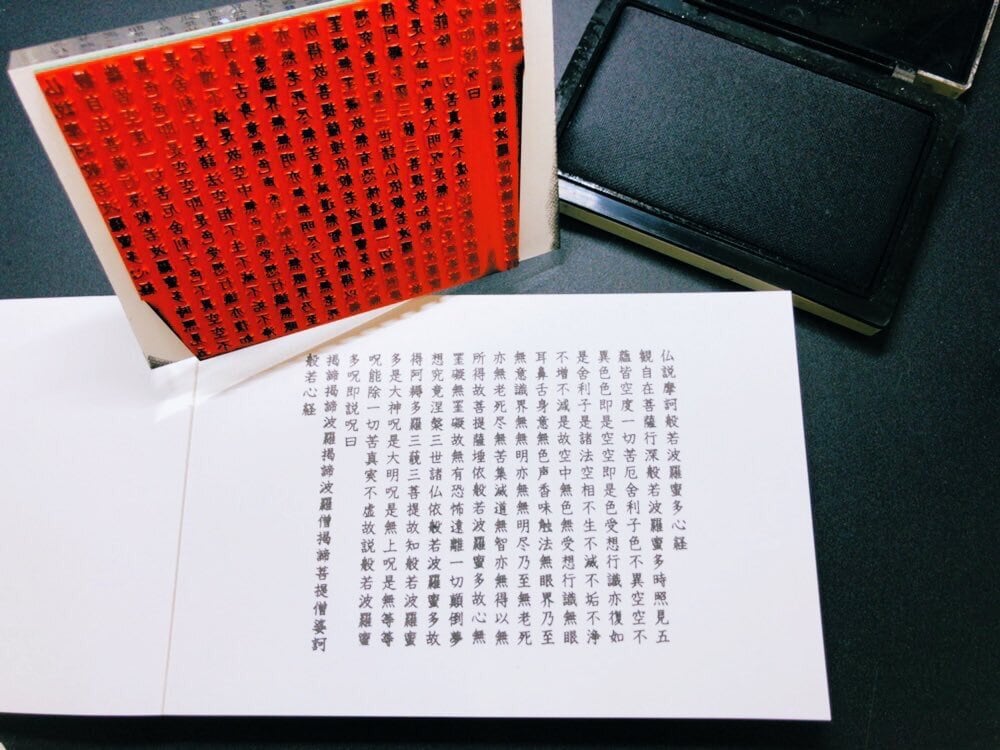 仏説摩訶般若波羅蜜多心経
観自在菩薩行深般若波羅蜜多時照見五
蘊皆空度一切苦厄舎利子色不異空空不
異色色即是空空即是色受想行識亦復如
是舎利子是諸法空相不生不滅不垢不浄
不増不減是故空中無色無受想行識無眼
耳鼻舌身意無色声香味触法無眼界乃至
無意識界無無明亦無無明尽乃至無老死
亦無老死尽無苦集滅道無智亦無得以無
所得故菩提薩埵依般若波羅蜜多故心無
罣礙無罣礙故無有恐怖遠離一切顛倒夢
想究竟涅槃三世諸仏依般若波羅蜜多故
得阿耨多羅三藐三菩提故知般若波羅蜜
多是大神呪是大明呪是無上呪是無等等
呪能除一切苦真実不虚故説般若波羅蜜
多呪即説呪曰
掲諦掲諦波羅掲諦波羅僧掲諦菩提僧婆訶
般若心経